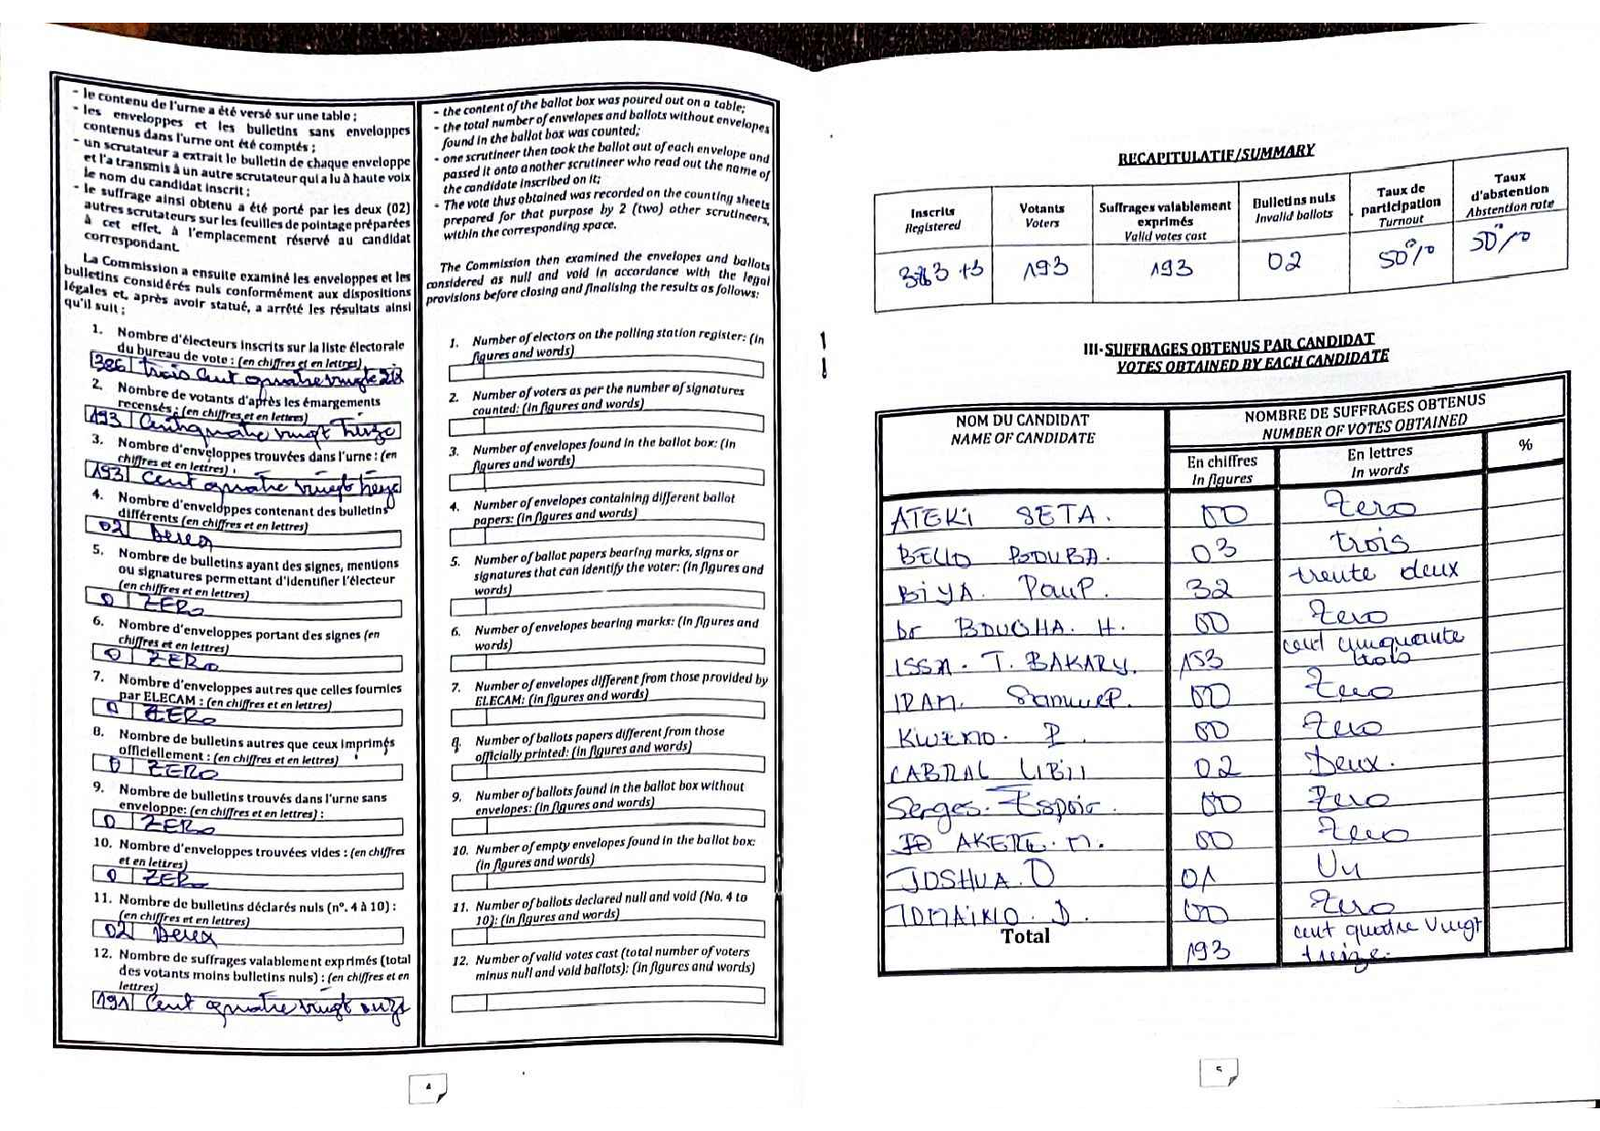 - le contenu de l'urne a été versé sur une table ;
- les enveloppes et les bulletins sans enveloppes
contenus dans l'urne ont été comptés ;
- un scrutateur a extrait le bulletin de chaque enveloppe
et l'a transmis à un autre scrutateur qui a lu à haute voix
le nom du candidat inscrit ;
- le suffrage ainsi obtenu a été porté par les deux (02)
autres scrutateurs sur les feuilles de pointage préparées
à cet effet, à l'emplacement réservé au candidat
correspondant.
La Commission a ensuite examiné les enveloppes et les
bulletins considérés nuls conformément aux dispositions
légales et, après avoir statué, a arrêté les résultats ainsi
qu'il suit ;
1. Nombre d'électeurs inscrits sur la liste électorale
du bureau de vote : (en chiffres et en lettres)
386 trois cent quatre vingt six
2. Nombre de votants d'après les émargements
recensés : (en chiffres et en lettres)
193 Cent quatre vingt treize
3. Nombre d'enveloppes trouvées dans l'urne : (en
chiffres et en lettres)
193 Cent quatre vingt treize
4. Nombre d'enveloppes contenant des bulletins
différents (en chiffres et en lettres)
02 Deux
5. Nombre de bulletins ayant des signes, mentions
ou signatures permettant d'identifier l'électeur
(en chiffres et en lettres)
0 ZERO
6. Nombre d'enveloppes portant des signes (en
chiffres et en lettres)
0 ZERO
7. Nombre d'enveloppes autres que celles fournies
par ELECAM : (en chiffres et en lettres)
0 ZERO
8. Nombre de bulletins autres que ceux imprimés
officiellement : (en chiffres et en lettres)
0 ZERO
9. Nombre de bulletins trouvés dans l'urne sans
enveloppe: (en chiffres et en lettres) :
0 ZERO
10. Nombre d'enveloppes trouvées vides : (en chiffres
et en lettres)
0 ZERO
11. Nombre de bulletins déclarés nuls (n°. 4 à 10) :
(en chiffres et en lettres)
02 Deux
12. Nombre de suffrages valablement exprimés (total
des votants moins bulletins nuls) : (en chiffres et en
lettres)
191 Cent quatre vingt onze
- the content of the ballot box was poured out on a table;
- the total number of envelopes and ballots without envelopes
found in the ballot box was counted;
- one scrutineer then took the ballot out of each envelope and
passed it onto another scrutineer who read out the name of
the candidate inscribed on it;
- The vote thus obtained was recorded on the counting sheets
prepared for that purpose by 2 (two) other scrutineers,
within the corresponding space.
The Commission then examined the envelopes and ballots
considered as null and void in accordance with the legal
provisions before closing and finalising the results as follows:
1. Number of electors on the polling station register: (in
figures and words)
2. Number of voters as per the number of signatures
counted: (in figures and words)
3. Number of envelopes found in the ballot box: (in
figures and words)
4. Number of envelopes containing different ballot
papers: (in figures and words)
5. Number of ballot papers bearing marks, signs or
signatures that can identify the voter: (in figures and
words)
6. Number of envelopes bearing marks: (in figures and
words)
7. Number of envelopes different from those provided by
ELECAM: (in figures and words)
8. Number of ballots papers different from those
officially printed: (in figures and words)
9. Number of ballots found in the ballot box without
envelopes: (in figures and words)
10. Number of empty envelopes found in the ballot box:
(in figures and words)
11. Number of ballots declared null and void (No. 4 to
10): (in figures and words)
12. Number of valid votes cast (total number of voters
minus null and void ballots): (in figures and words)
4
RECAPITULATIF/SUMMARY
Inscrits Votants Suffrages valablement exprimés Bulletins nuls Taux de participation Taux d'abstention
Registered Voters Valid votes cast Invalid ballots Turnout Abstention rate
383 +3 193 193 02 50% 50%
III-SUFFRAGES OBTENUS PAR CANDIDAT
VOTES OBTAINED BY EACH CANDIDATE
NOM DU CANDIDAT NOMBRE DE SUFFRAGES OBTENUS
NAME OF CANDIDATE NUMBER OF VOTES OBTAINED
En chiffres En lettres %
In figures In words
ATEKI SETA. 00 Zero
BELLO BOUBA. 03 trois
BIYA. Paul. 32 trente deux
br BOUGHA. H. 00 Zero
ISSA. T. BAKARY. 153 cent cinquante trois
IRAM. Samuel. 00 Zero
KWEMO. P. 00 Zero
CABRAL LIBII 02 Deux.
Serges. Espoir. 00 Zero
AKERE. M. 00 Zero
JOSHUA. O 01 Un
TOMAINO. D. 00 Zero
Total 193 cent quatre vingt treize.
5